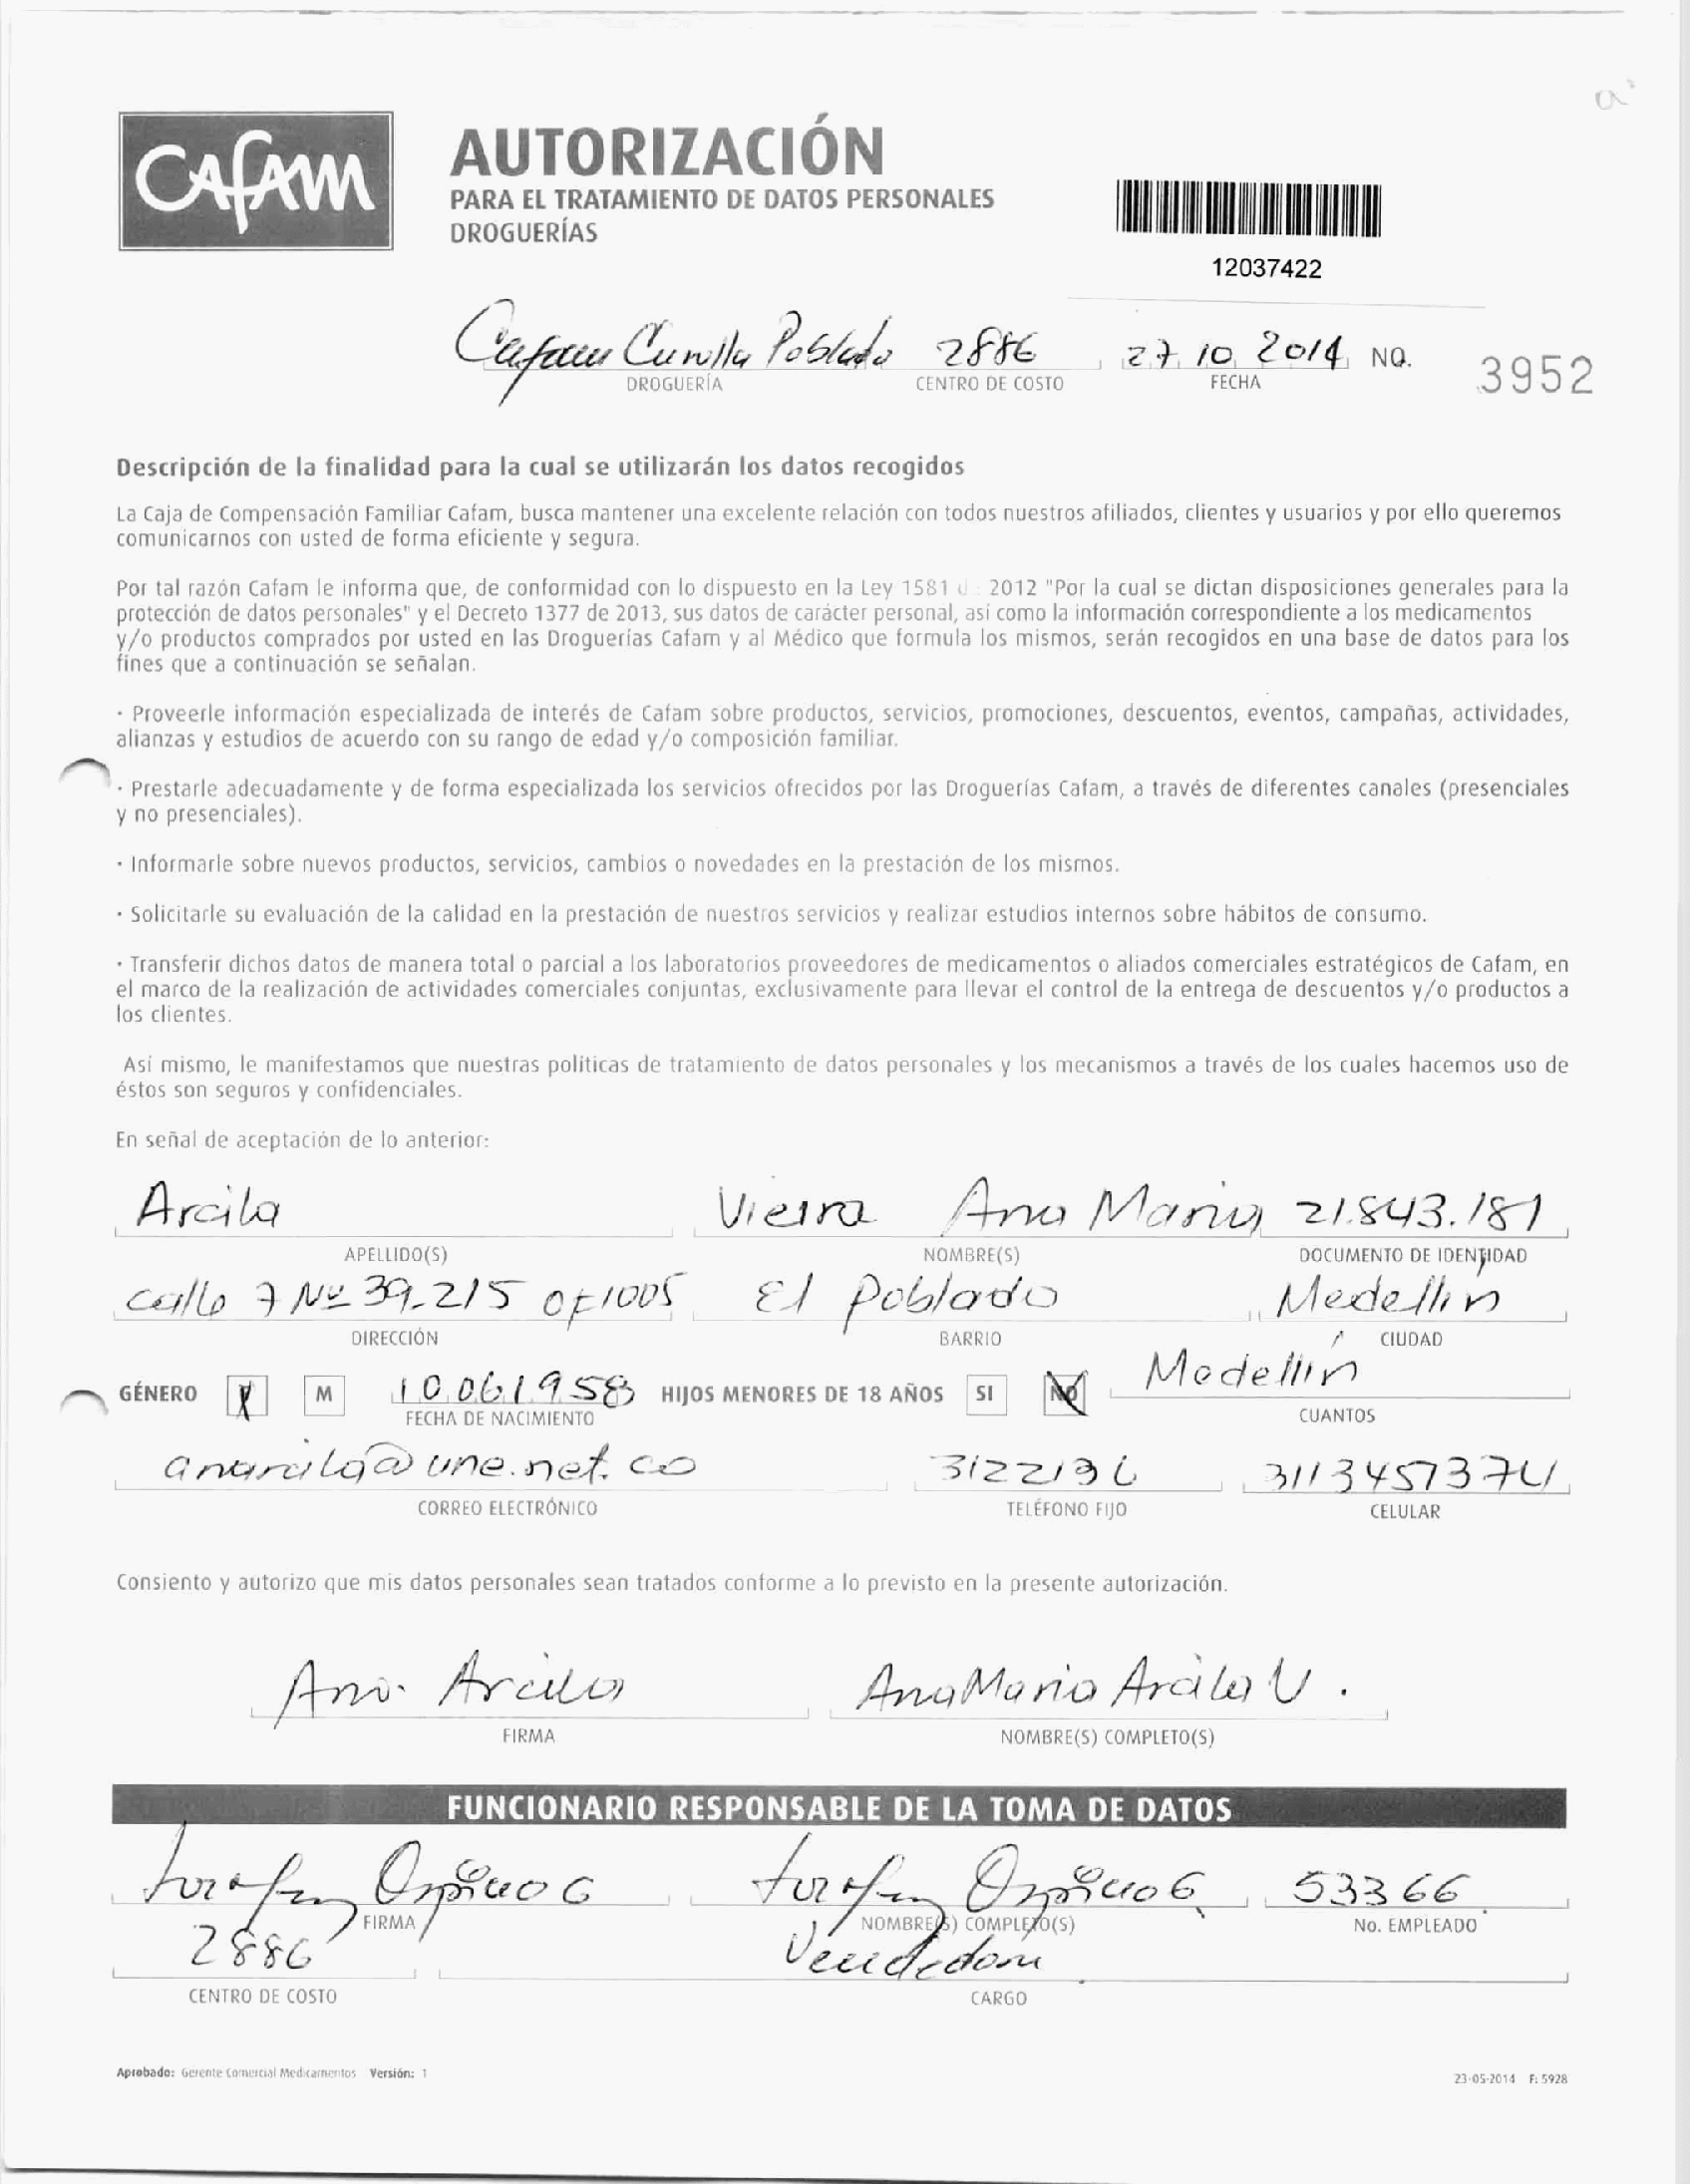 CAFAM
AUTORIZACIÓN
PARA EL TRATAMIENTO DE DATOS PERSONALES
DROGUERÍAS
12037422
Poblado 2886 27 10 2014 NO. 3952
DROGUERÍA CENTRO DE COSTO FECHA
Descripción de la finalidad para la cual se utilizarán los datos recogidos
La Caja de Compensación Familiar Cafam, busca mantener una excelente relación con todos nuestros afiliados, clientes y usuarios y por ello queremos
comunicarnos con usted de forma eficiente y segura.
Por tal razón Cafam le informa que, de conformidad con lo dispuesto en la Ley 1581 d 2012 "Por la cual se dictan disposiciones generales para la
protección de datos personales" y el Decreto 1377 de 2013, sus datos de carácter personal, así como la información correspondiente a los medicamentos
y/o productos comprados por usted en las Droguerías Cafam y al Médico que formula los mismos, serán recogidos en una base de datos para los
fines que a continuación se señalan.
· Proveerle información especializada de interés de Cafam sobre productos, servicios, promociones, descuentos, eventos, campañas, actividades,
alianzas y estudios de acuerdo con su rango de edad y/o composición familiar.
· Prestarle adecuadamente y de forma especializada los servicios ofrecidos por las Droguerías Cafam, a través de diferentes canales (presenciales
y no presenciales).
· Informarle sobre nuevos productos, servicios, cambios o novedades en la prestación de los mismos.
· Solicitarle su evaluación de la calidad en la prestación de nuestros servicios y realizar estudios internos sobre hábitos de consumo.
· Transferir dichos datos de manera total o parcial a los laboratorios proveedores de medicamentos o aliados comerciales estratégicos de Cafam, en
el marco de la realización de actividades comerciales conjuntas, exclusivamente para llevar el control de la entrega de descuentos y/o productos a
los clientes.
Así mismo, le manifestamos que nuestras políticas de tratamiento de datos personales y los mecanismos a través de los cuales hacemos uso de
éstos son seguros y confidenciales.
En señal de aceptación de lo anterior:
Arcila Vieira Ana Maria 21.843.181
APELLIDO(S) NOMBRE(S) DOCUMENTO DE IDENTIDAD
calle 7 Nº 39-215 OF1005 El Poblado Medellin
DIRECCIÓN BARRIO CIUDAD
GÉNERO X M 10 06 1958 HIJOS MENORES DE 18 AÑOS SI NO Medellin
FECHA DE NACIMIENTO CUANTOS
anarcila@une.net.co 3122136 3113457374
CORREO ELECTRÓNICO TELÉFONO FIJO CELULAR
Consiento y autorizo que mis datos personales sean tratados conforme a lo previsto en la presente autorización.
Ana Arcila Ana Maria Arcila V.
FIRMA NOMBRE(S) COMPLETO(S)
FUNCIONARIO RESPONSABLE DE LA TOMA DE DATOS
53366
FIRMA NOMBRE(S) COMPLETO(S) No. EMPLEADO
2886 Vendedora
CENTRO DE COSTO CARGO
Aprobado: Gerente Comercial Medicamentos Versión: 1
23-05-2014 F: 5928